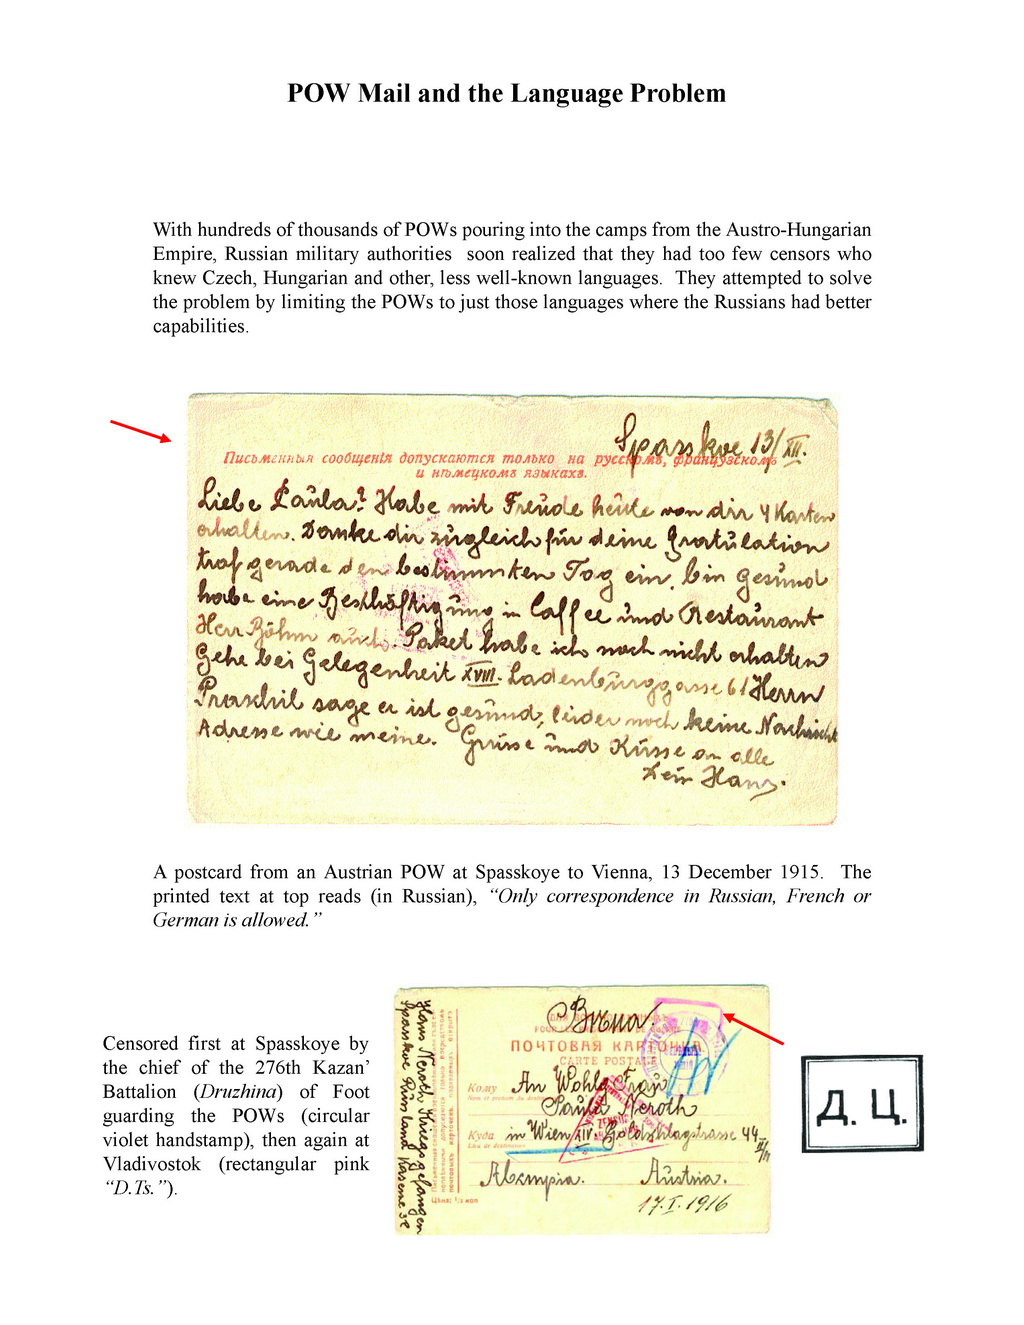 POW Mail and the Language Problem
With hundreds of thousands of POWs pouring into the camps from the Austro-Hungarian
Empire, Russian military authorities soon realized that they had too few censors who
knew Czech, Hungarian and other, less well-known languages. They attempted to solve
the problem by limiting the POWs to just those languages where the Russians had better
capabilities.
Spasskoe 13/XII.
Письменныя сообщенія допускаются только на русскомъ, французскомъ
и нѣмецкомъ языкахъ.
Liebe Paula! Habe mit Freude heute von dir 4 Karten
erhalten. Danke dir zugleich für deine Gratulation
traf gerade den bestimmten Tag ein, bin gesund
habe eine Beschäftigung in Caffee und Restaurant
Herr Böhm auch. Paket habe ich noch nicht erhalten
Gehe bei Gelegenheit XVIII. Ladenburggasse 61 Herrn
sage er ist gesund, leider noch keine Nachricht
Adresse wie meine. Grüsse und Küsse an alle
Dein Hans.
A postcard from an Austrian POW at Spasskoye to Vienna, 13 December 1915. The
printed text at top reads (in Russian), “Only correspondence in Russian, French or
German is allowed.”
Censored first at Spasskoye by
the chief of the 276th Kazan’
Battalion (Druzhina) of Foot
guarding the POWs (circular
violet handstamp), then again at
Vladivostok (rectangular pink
“D.Ts.”).
Hans Neroth Kriegsgefangen
Spasskoe Russland Kaserne 32
Вѣна
ПОЧТОВАЯ КАРТОЧКА
CARTE POSTALE
Кому An Wohlg. Frau
Paula Neroth
Куда in Wien XIV. Goldschlagstrasse 44
Lieu de destination
Австрія. Austria.
17.I.1916
Цѣна: 1/2 коп
Д. Ц.